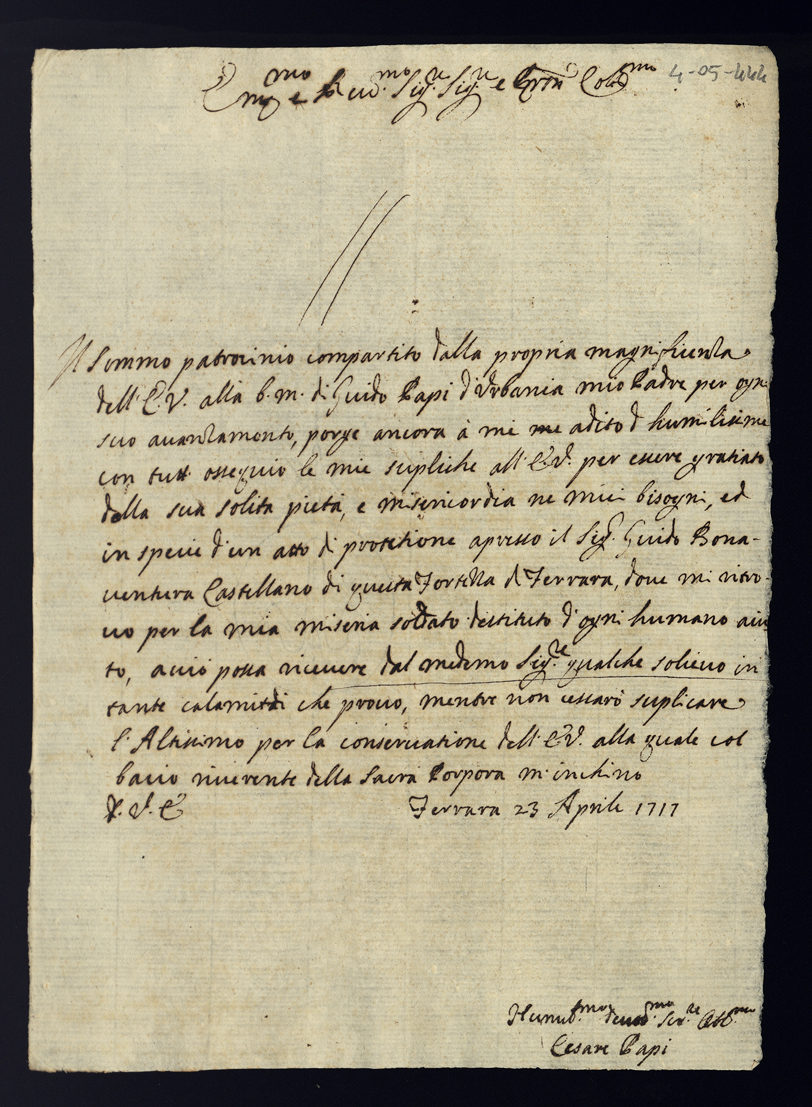 Em.mo e Reud.mo Sig.re Sig.re e Pron Col.mo
4-05-444
Il sommo patrocinio compartito dalla propria magnificenza
dell'E.V. alla b.m. di Guido Papi d'Urbania mio Padre per ogni
suo auanzamento, porge ancora à mi me adito d humilissime
con tutt. ossequio le mie supliche all'E.V. per essere gratiato
della sua solita pietà, e misericordia ne miei bisogni, ed
in specie d'un atto di protetione apresso il Sig.r Guido Bona-
uentura Castellano di questa Fortezza di Ferrara, doue mi ritro-
uo per la mia miseria soldato destituto d'ogni humano aiu
to, acciò possa riceuere dal medemo Sig.re qualche solieuo in
tante calamità che prouo, mentre non cessarò suplicare
l'Altissimo per la conseruatione dell'E.V. alla quale col
bacio riuerente della Sacra Porpora m'inchino
D.V.E. Ferrara 23 Aprile 1717
Humil.mo Deuot.mo Ser.re Obl.mo
Cesare Papi